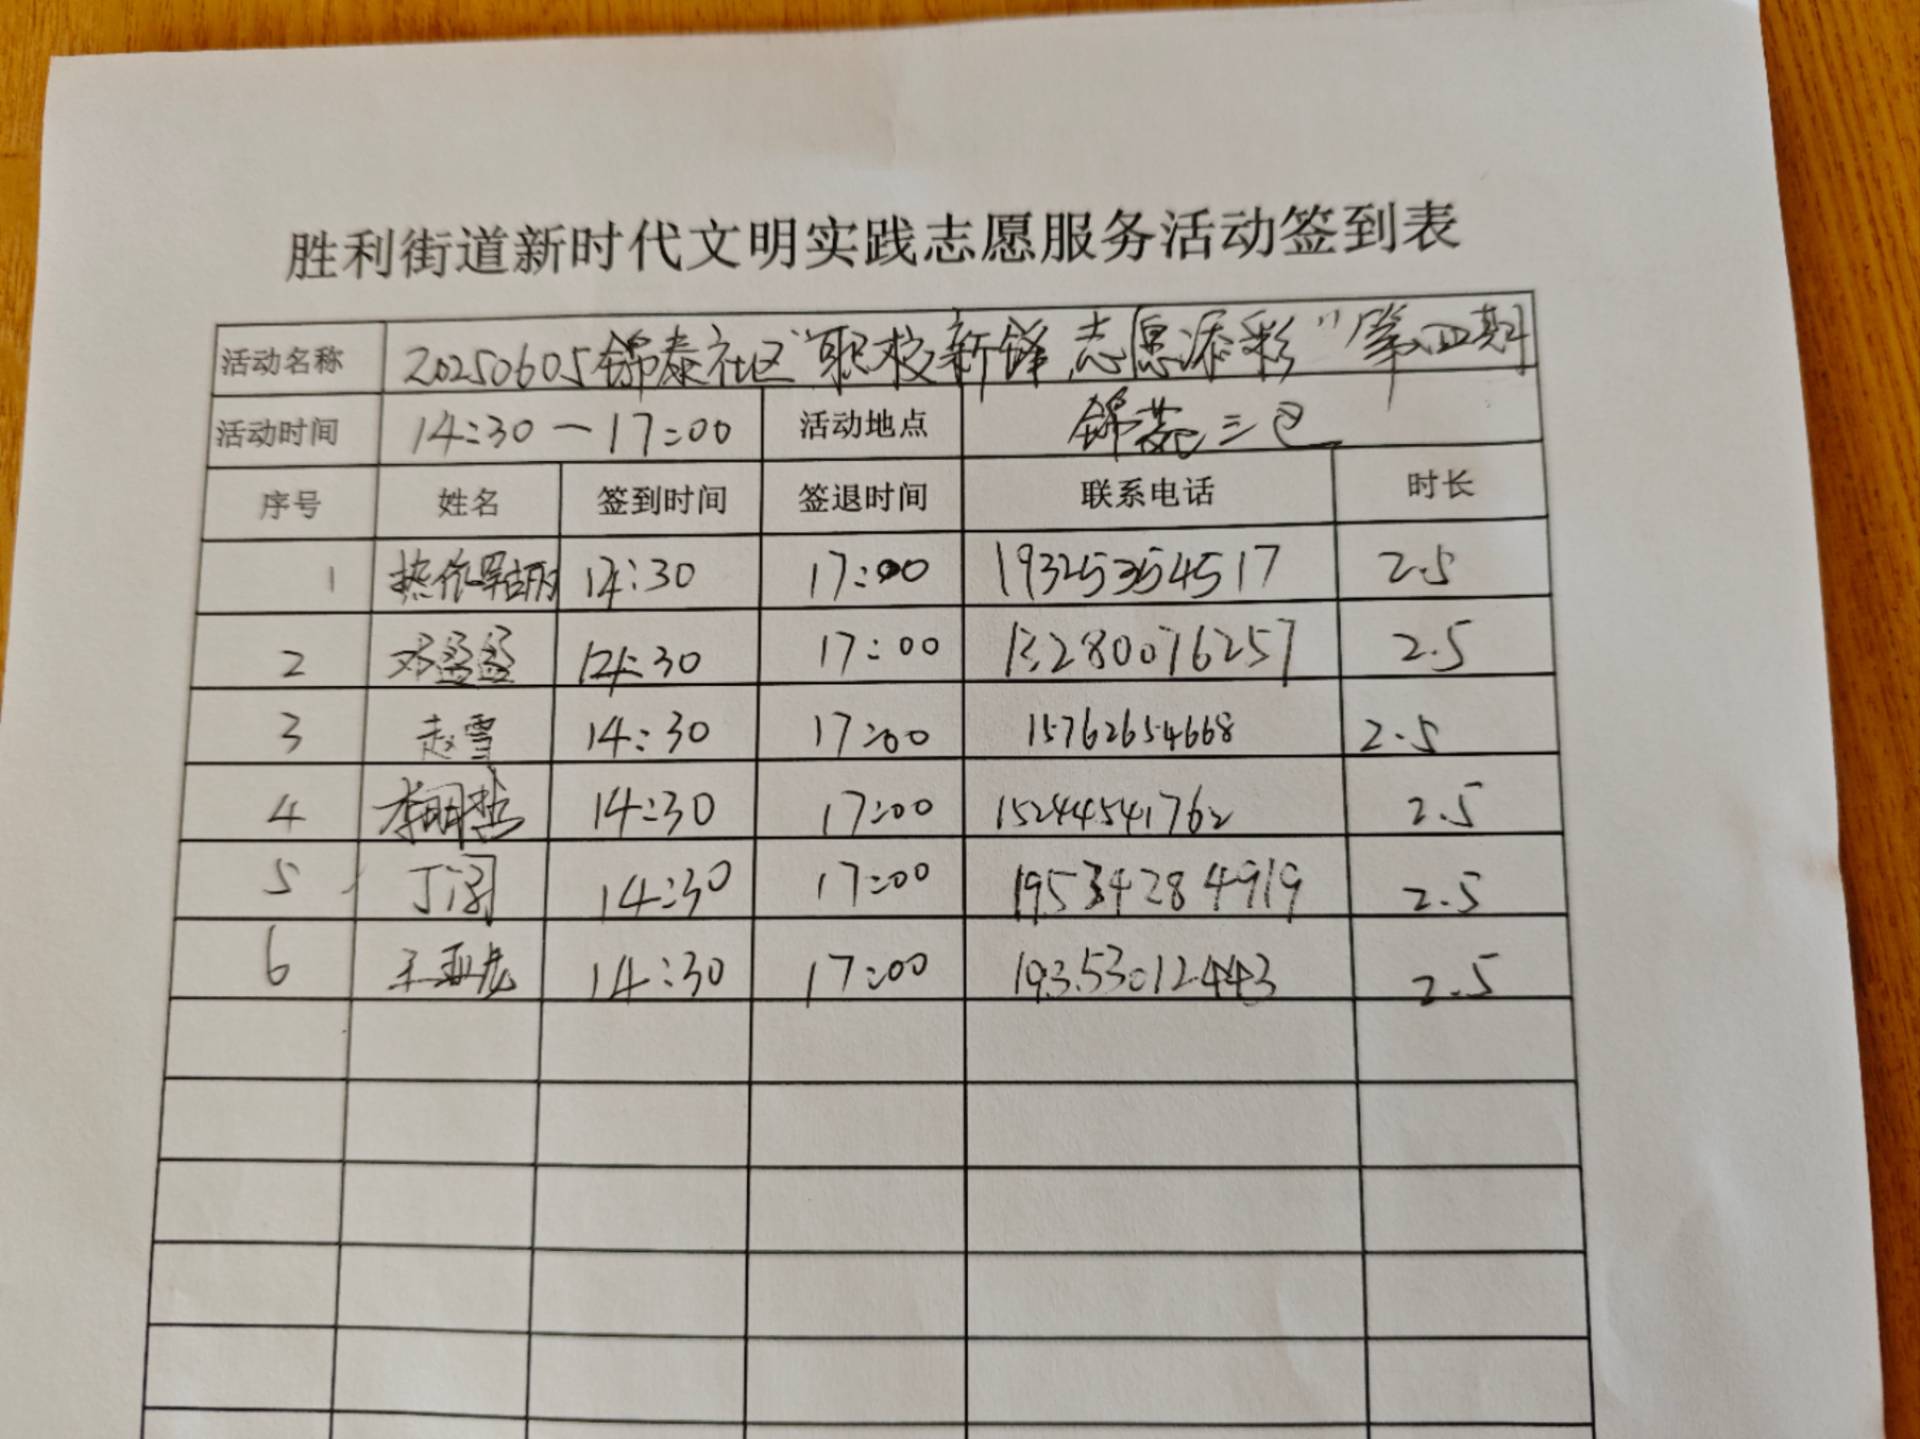 胜利街道新时代文明实践志愿服务活动签到表
活动名称 20250605锦泰社区"职校新锋 志愿添彩"第四期
活动时间 14:30-17:00 活动地点 锦苑三区
序号 姓名 签到时间 签退时间 联系电话 时长
1 14:30 17:00 19325354517 2.5
2 邓盈盈 14:30 17:00 13280076257 2.5
3 赵雪 14:30 17:00 15762654668 2.5
4 李明哲 14:30 17:00 15244541762 2.5
5 丁润 14:30 17:00 19534284919 2.5
6 王亚龙 14:30 17:00 19353012443 2.5